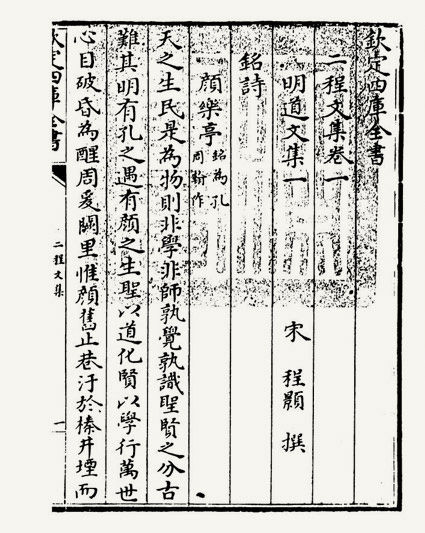 欽定四庫全書
二程文集卷一
明道文集一
宋 程顥 撰
銘詩
顔樂亭銘為孔周翰作
天之生民是為物則非學非師孰覺孰識聖賢之分古
難其明有孔之遇有顔之生聖以道化賢以學行萬世
心目破昏為醒周爰闕里惟顔舊止巷汙於榛井堙而
欽定四庫全書
二程文集
一